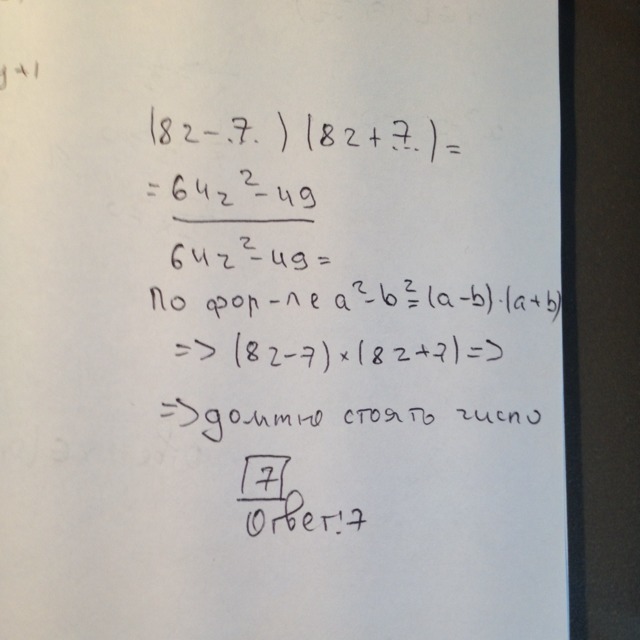 y+1
(8z-.7.) (8z+.7.)=
=64z²-49
64z²-49=
По фор-ле a²-b²=(a-b)·(a+b)
=> (8z-7)×(8z+7)=>
=> должно стоять число
7
Ответ: 7